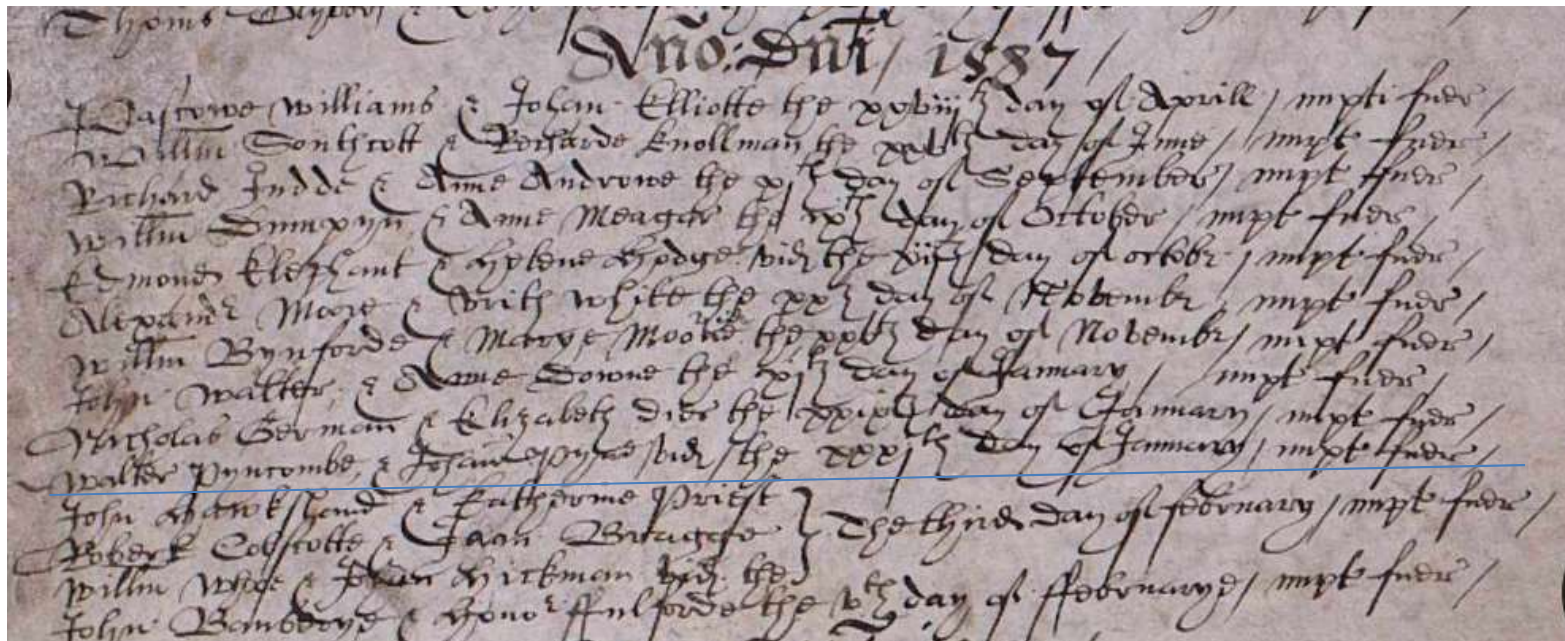 Thoms
Año: Dñi / 1587 /
Pascowe Williams & Johan Elliotte the xxviijth day of Aprill / nupti fuer /
Willm Southcott & Richarde Knollman the day of June / nupt fuer /
Richard Judde & Anne Androwe the xjth day of September / nupt ffuer /
Willm & Anne Meagar the day of October / nupt fuer /
Edmond Elephant & Helene Hodge vid the day of octobr / nupt fuer /
Alexandr Moore & Vrith White the xxth day of Novembr / nupt fuer /
Willm Bynforde & Marye the xxvth day of Novembr / nupt ffuer /
John Walter & Anne Downe the xjth day of January / nupt fuer /
Nicholas German & Elizabeth dier the xxixth day of January / nupt fuer /
Walter Pyncombe & Johan vid / the xxxjth day of January / nupt fuer /
John Hawkshand & Katherine Priest
Robert & Jaan } The third day of february / nupt fuer /
Willm & Hickman vid the
John & Honor ffulforde the vth day of ffebruarye / nupt fuer /